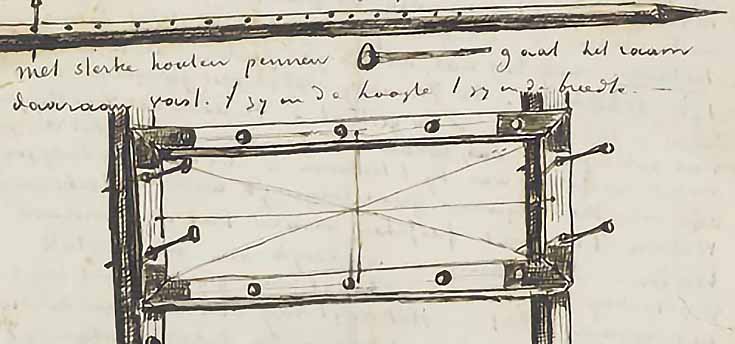 met sterke houten pennen gaat het raam
daaraan vast. 't zy in de hoogte 't zy in de breedte. —